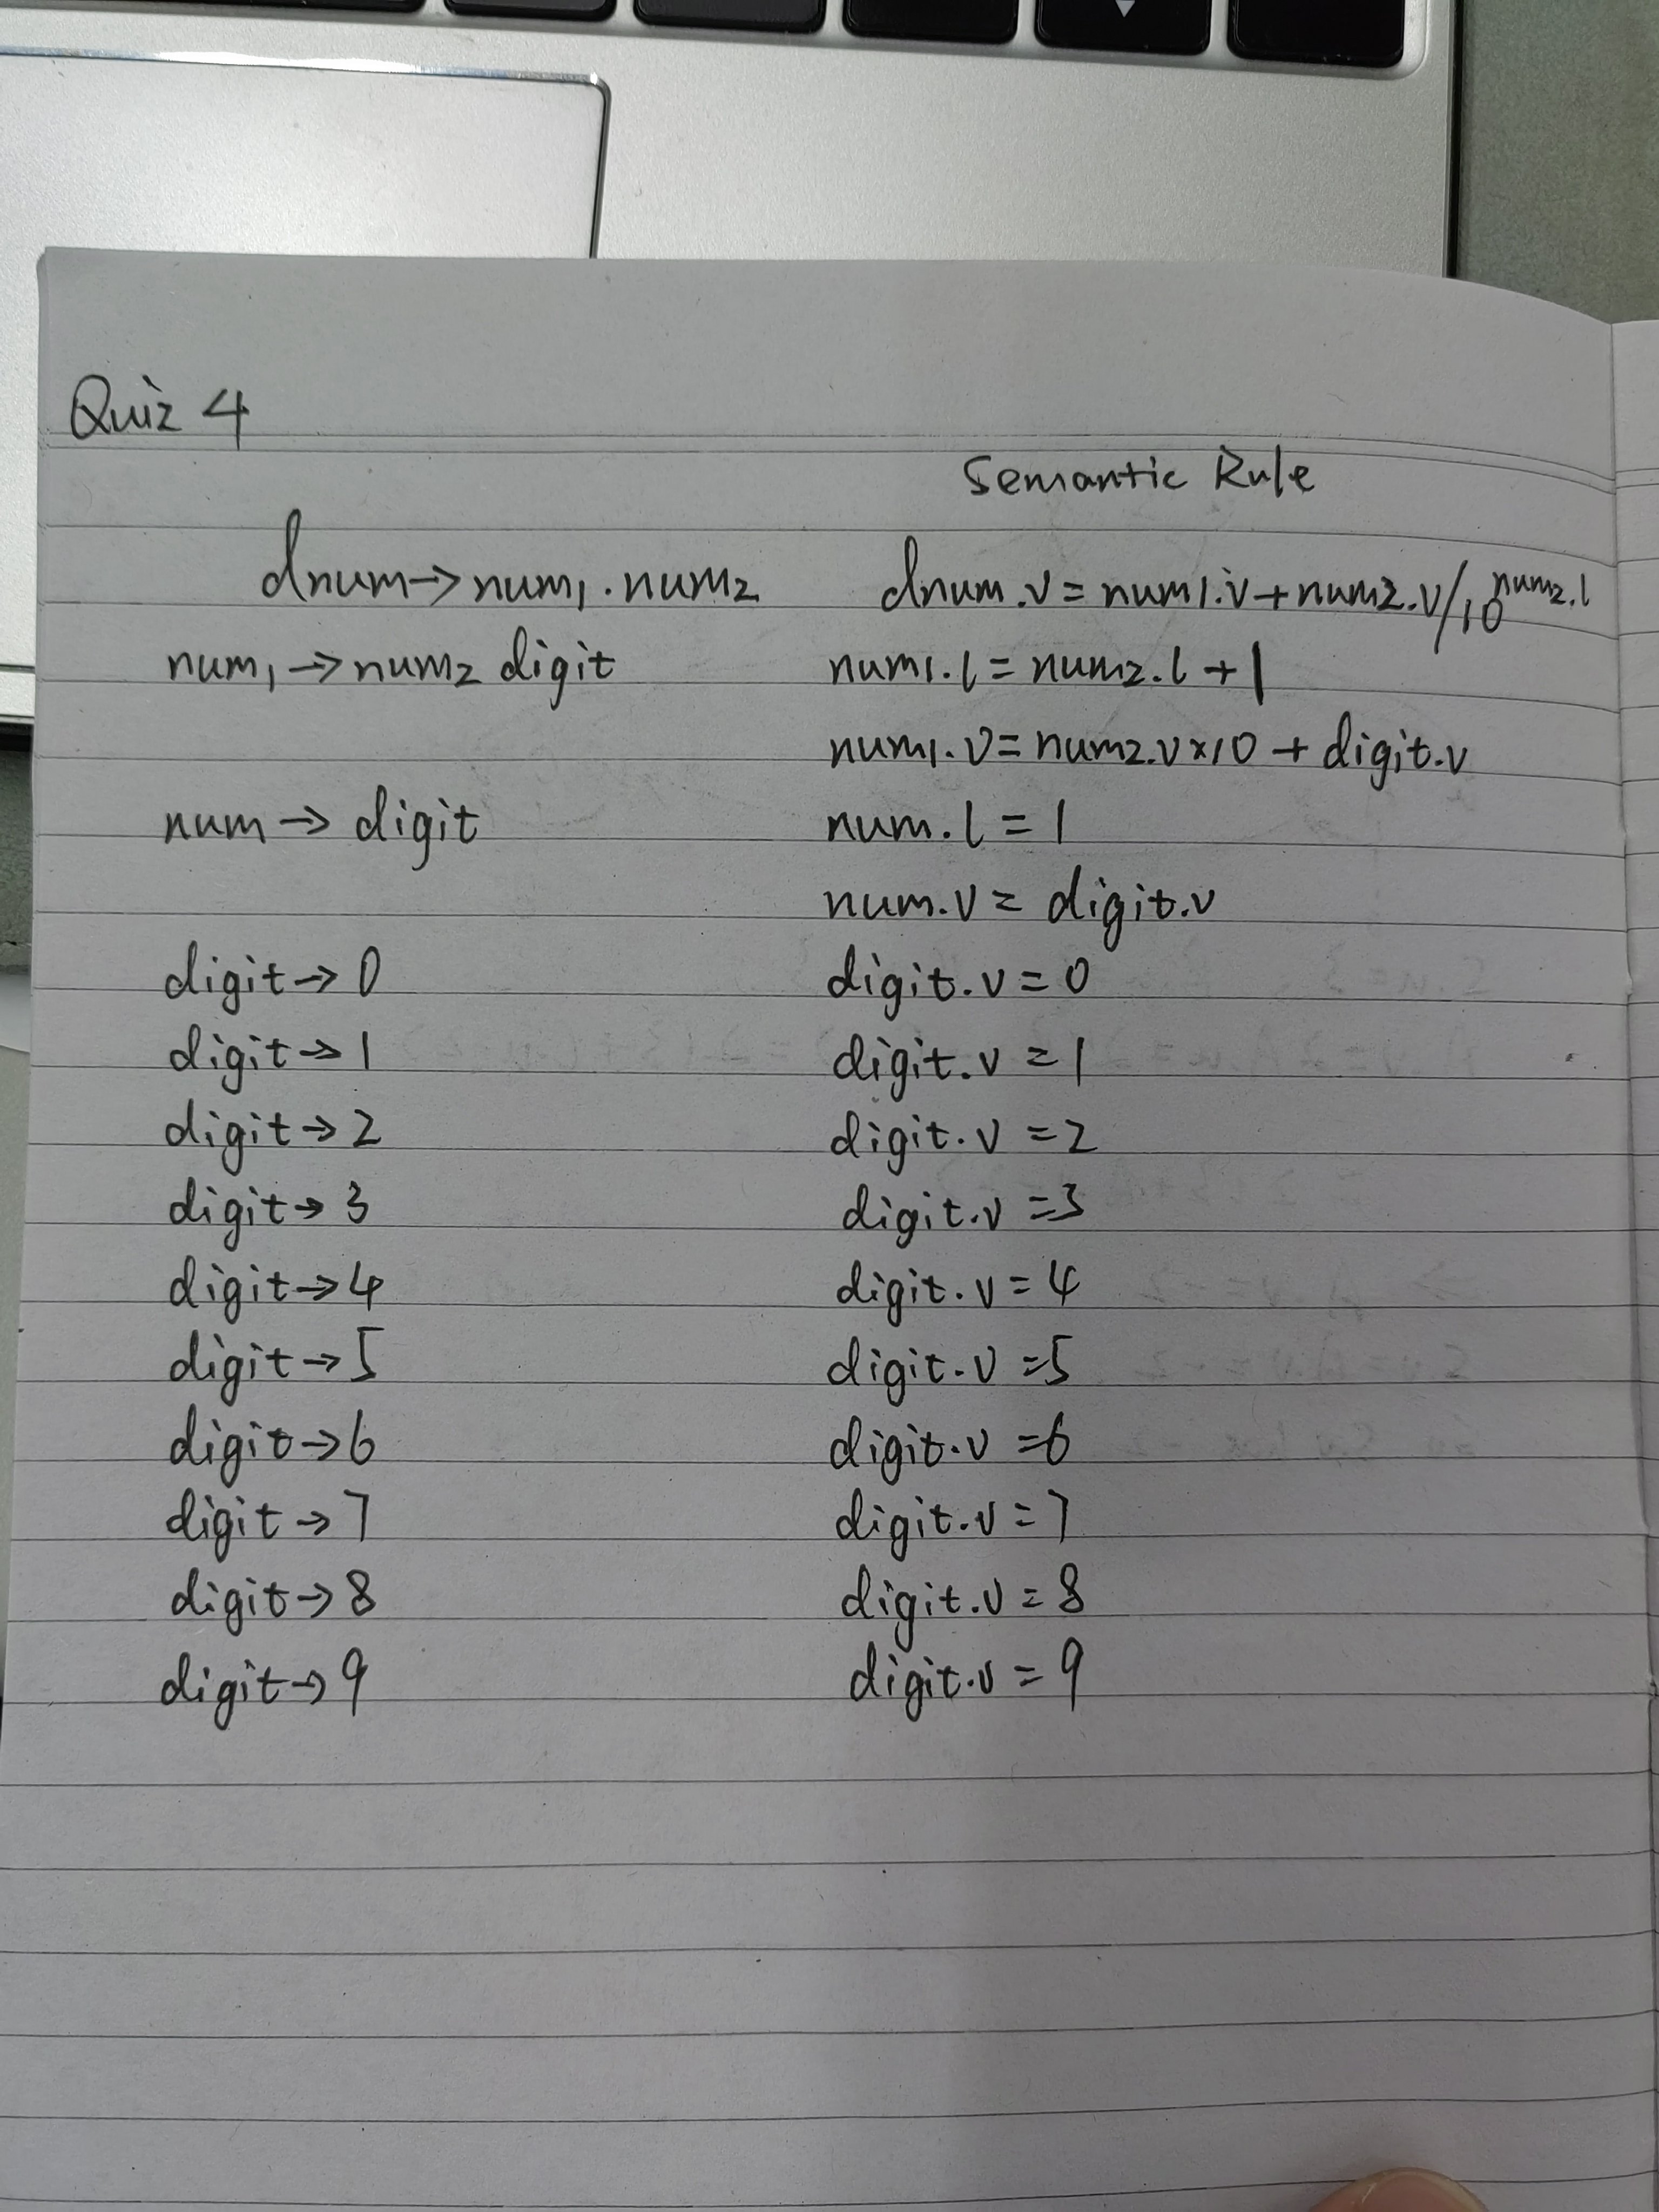 Quiz 4
Semantic Rule
dnum→num₁.num₂ dnum.v=num1.v+num2.v/10^num₂.l
num₁→num₂ digit num₁.l=num₂.l+1
num₁.v=num₂.v×10+digit.v
num→digit num.l=1
num.v=digit.v
digit→0 digit.v=0
digit→1 digit.v=1
digit→2 digit.v=2
digit→3 digit.v=3
digit→4 digit.v=4
digit→5 digit.v=5
digit→6 digit.v=6
digit→7 digit.v=7
digit→8 digit.v=8
digit→9 digit.v=9